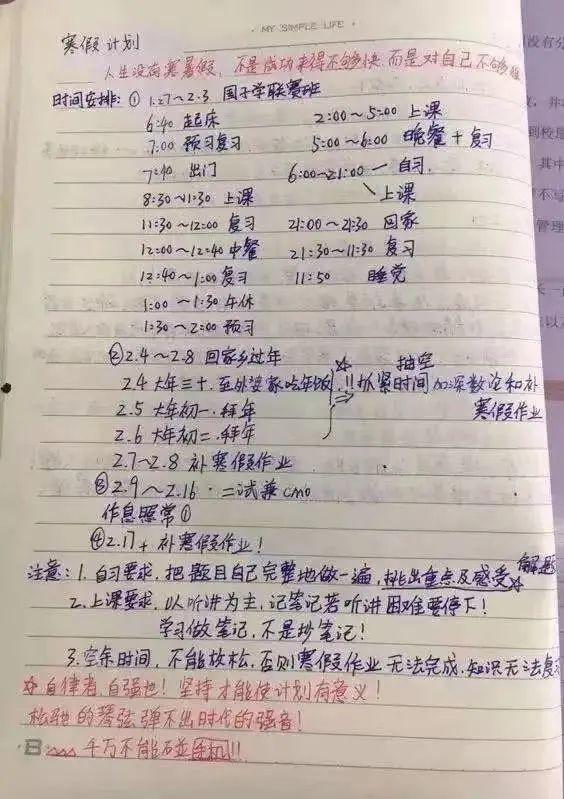 MY SIMPLE LIFE
寒假计划
人生没有寒暑假，不是成功来得不够快，而是对自己不够狠
时间安排：① 1.27～2.3 国子学联赛班
6:40 起床 2:00～5:00 上课
7:00 预习复习 5:00～6:00 晚餐＋复习
7:40 出门 6:00～21:00 一 自习
8:30～11:30 上课 上课
11:30～12:00 复习 21:00～21:30 回家
12:00～12:40 中餐 21:30～11:30 复习
12:40～1:00 复习 11:50 睡觉
1:00～1:30 午休
1:30～2:00 预习
② 2.4～2.8 回家乡过年 抽空
2.4 大年三十. 至外婆家吃年饭 !! 抓紧时间 加深数论和补
2.5 大年初一. 拜年 寒假作业
2.6 大年初二. 拜年
2.7～2.8 补寒假作业
③ 2.9～2.16 · 二试兼CMO
作息照常①
④ 2.17＋ 补寒假作业！
注意：1. 自习要求，把题目自己完整地做一遍，挑出重点及感受 解题
2. 上课要求，以听讲为主，记笔记若听讲困难要停下！
学习做笔记，不是抄笔记！
3. 空余时间，不能放松，否则寒假作业无法完成，知识无法复
☆ 自律者，自强也！坚持才能使计划有意义！
松弛的琴弦弹不出时代的强音！
千万不能碰手机!!!
管理